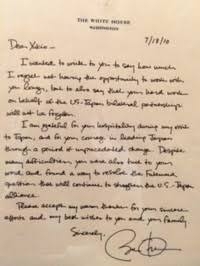 THE WHITE HOUSE
WASHINGTON
7/18/10
Dear Yukio —
I wanted to write to you to say how much
I regret not having the opportunity to work with
you longer, but to also say that your hard work
on behalf of the US-Japan bilateral partnership
will not be forgotten.
I am grateful for your hospitality during my visit
to Japan, and for your courage in leading Japan
through a period of unprecedented change. Despite
many difficulties, you were also true to your
word, and found a way to resolve the Futenma
question that will continue to strengthen the U.S.-Japan
alliance.
Please accept my warm thanks for your sincere
efforts and my best wishes to you and your family.
Sincerely,